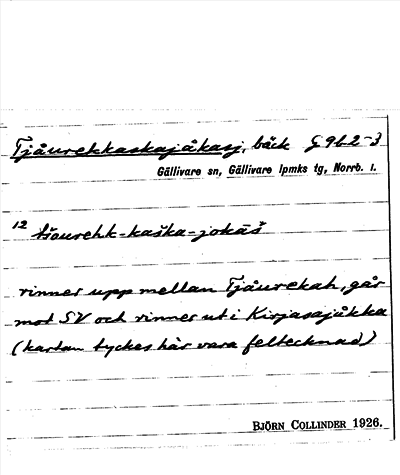 Tjåurekkaskajåkasj, bäck G9b2-3
Gällivare sn, Gällivare lpmks tg, Norrb. l.
12 tšaurehk-kaška-jokāš
rinner upp mellan Tjåurekah, går
mot SV och rinner ut i Kirjasajåkka
(kartan tyckes här vara feltecknad)
BJÖRN COLLINDER 1926.